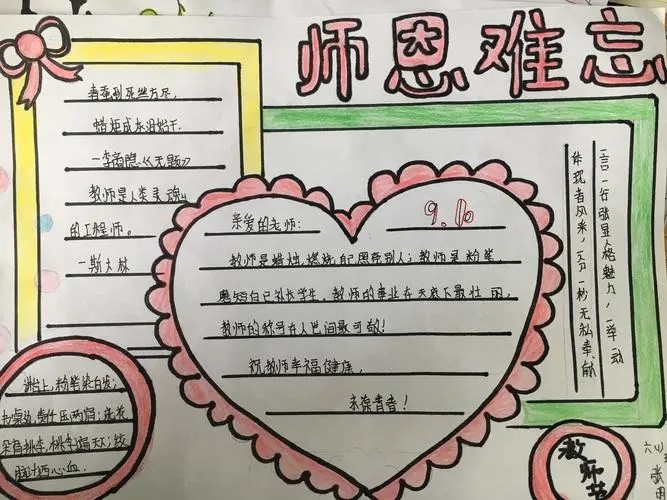 师恩难忘
春蚕到死丝方尽,
蜡炬成灰泪始干.
—李商隐《无题》
教师是人类灵魂
的工程师。
—斯大林
亲爱的老师:
9.10
教师是蜡烛,燃烧自己照亮别人;教师是粉笔,
磨短自己补长学生,教师的事业在天底下最壮丽,
教师的称号在人世间最可敬!
祝教师幸福健康,
永葆青春!
一言一行张显人格魅力,一举一动
体现者风采,一分一秒无私奉献
讲台上,粉笔染白发;
责任压两肩;
朵有桃李,桃李遍天下;绞
心血.
教师节